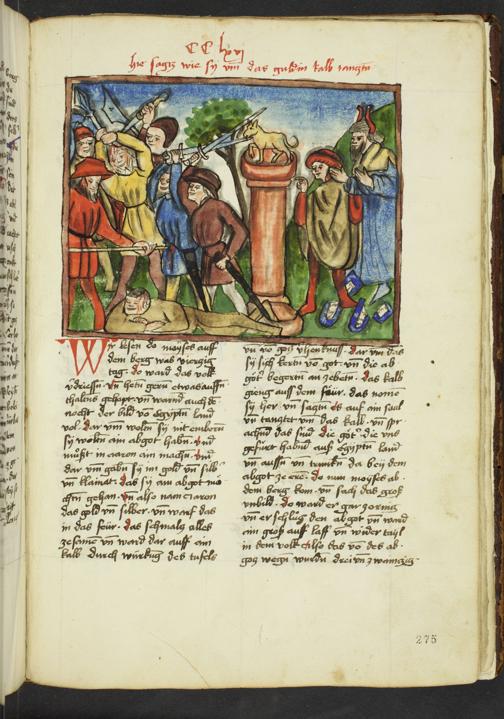 CC lxvi
hie sagtz wie sy vm das guldin kalb tanztn
Wir lesen do moyses auff
dem berg was viertzig
tag. do ward das volk
vn klamat. do
thalens gehapt. vn warnd auch de
nocht der bild vō egyptn land
vol. dar vm woltn sy nit enbern
sy woltn ain abgot habn. vnd
must in aaron ain machn. vnd
dar vm gabn sy im gold vn silb
das sy am abgot mo
chtn gehan. vn also nam aaron
das gold vn silber. vn warf das
in das feur. das schmaltz alles
zesame vn ward dar auss ain
kalb durch würkug des tufels
dar vm das
sy sich kertn vō got. vn die ab
göt begertn an zebetn. das kalb
gieng auss dem feur. das nome
sy her. vn saztn es auf ain saul
vn tanztet vm das kalb. vn spr
achnd das sind die göt. die vns
gefürt habnd auss egyptn land
vn aussn vn trunkn da bey dem
abgot ze ere. do nun moyses ab
dem berg kom. vn sach das gross
vnbild. do ward er gar zornig
vn er schlug den abgot vn ward
ain gross auff lauff vn wider tayl
in dem volk. Also das vō des ab
goz wegn wurdn drei vn zwainzig
275